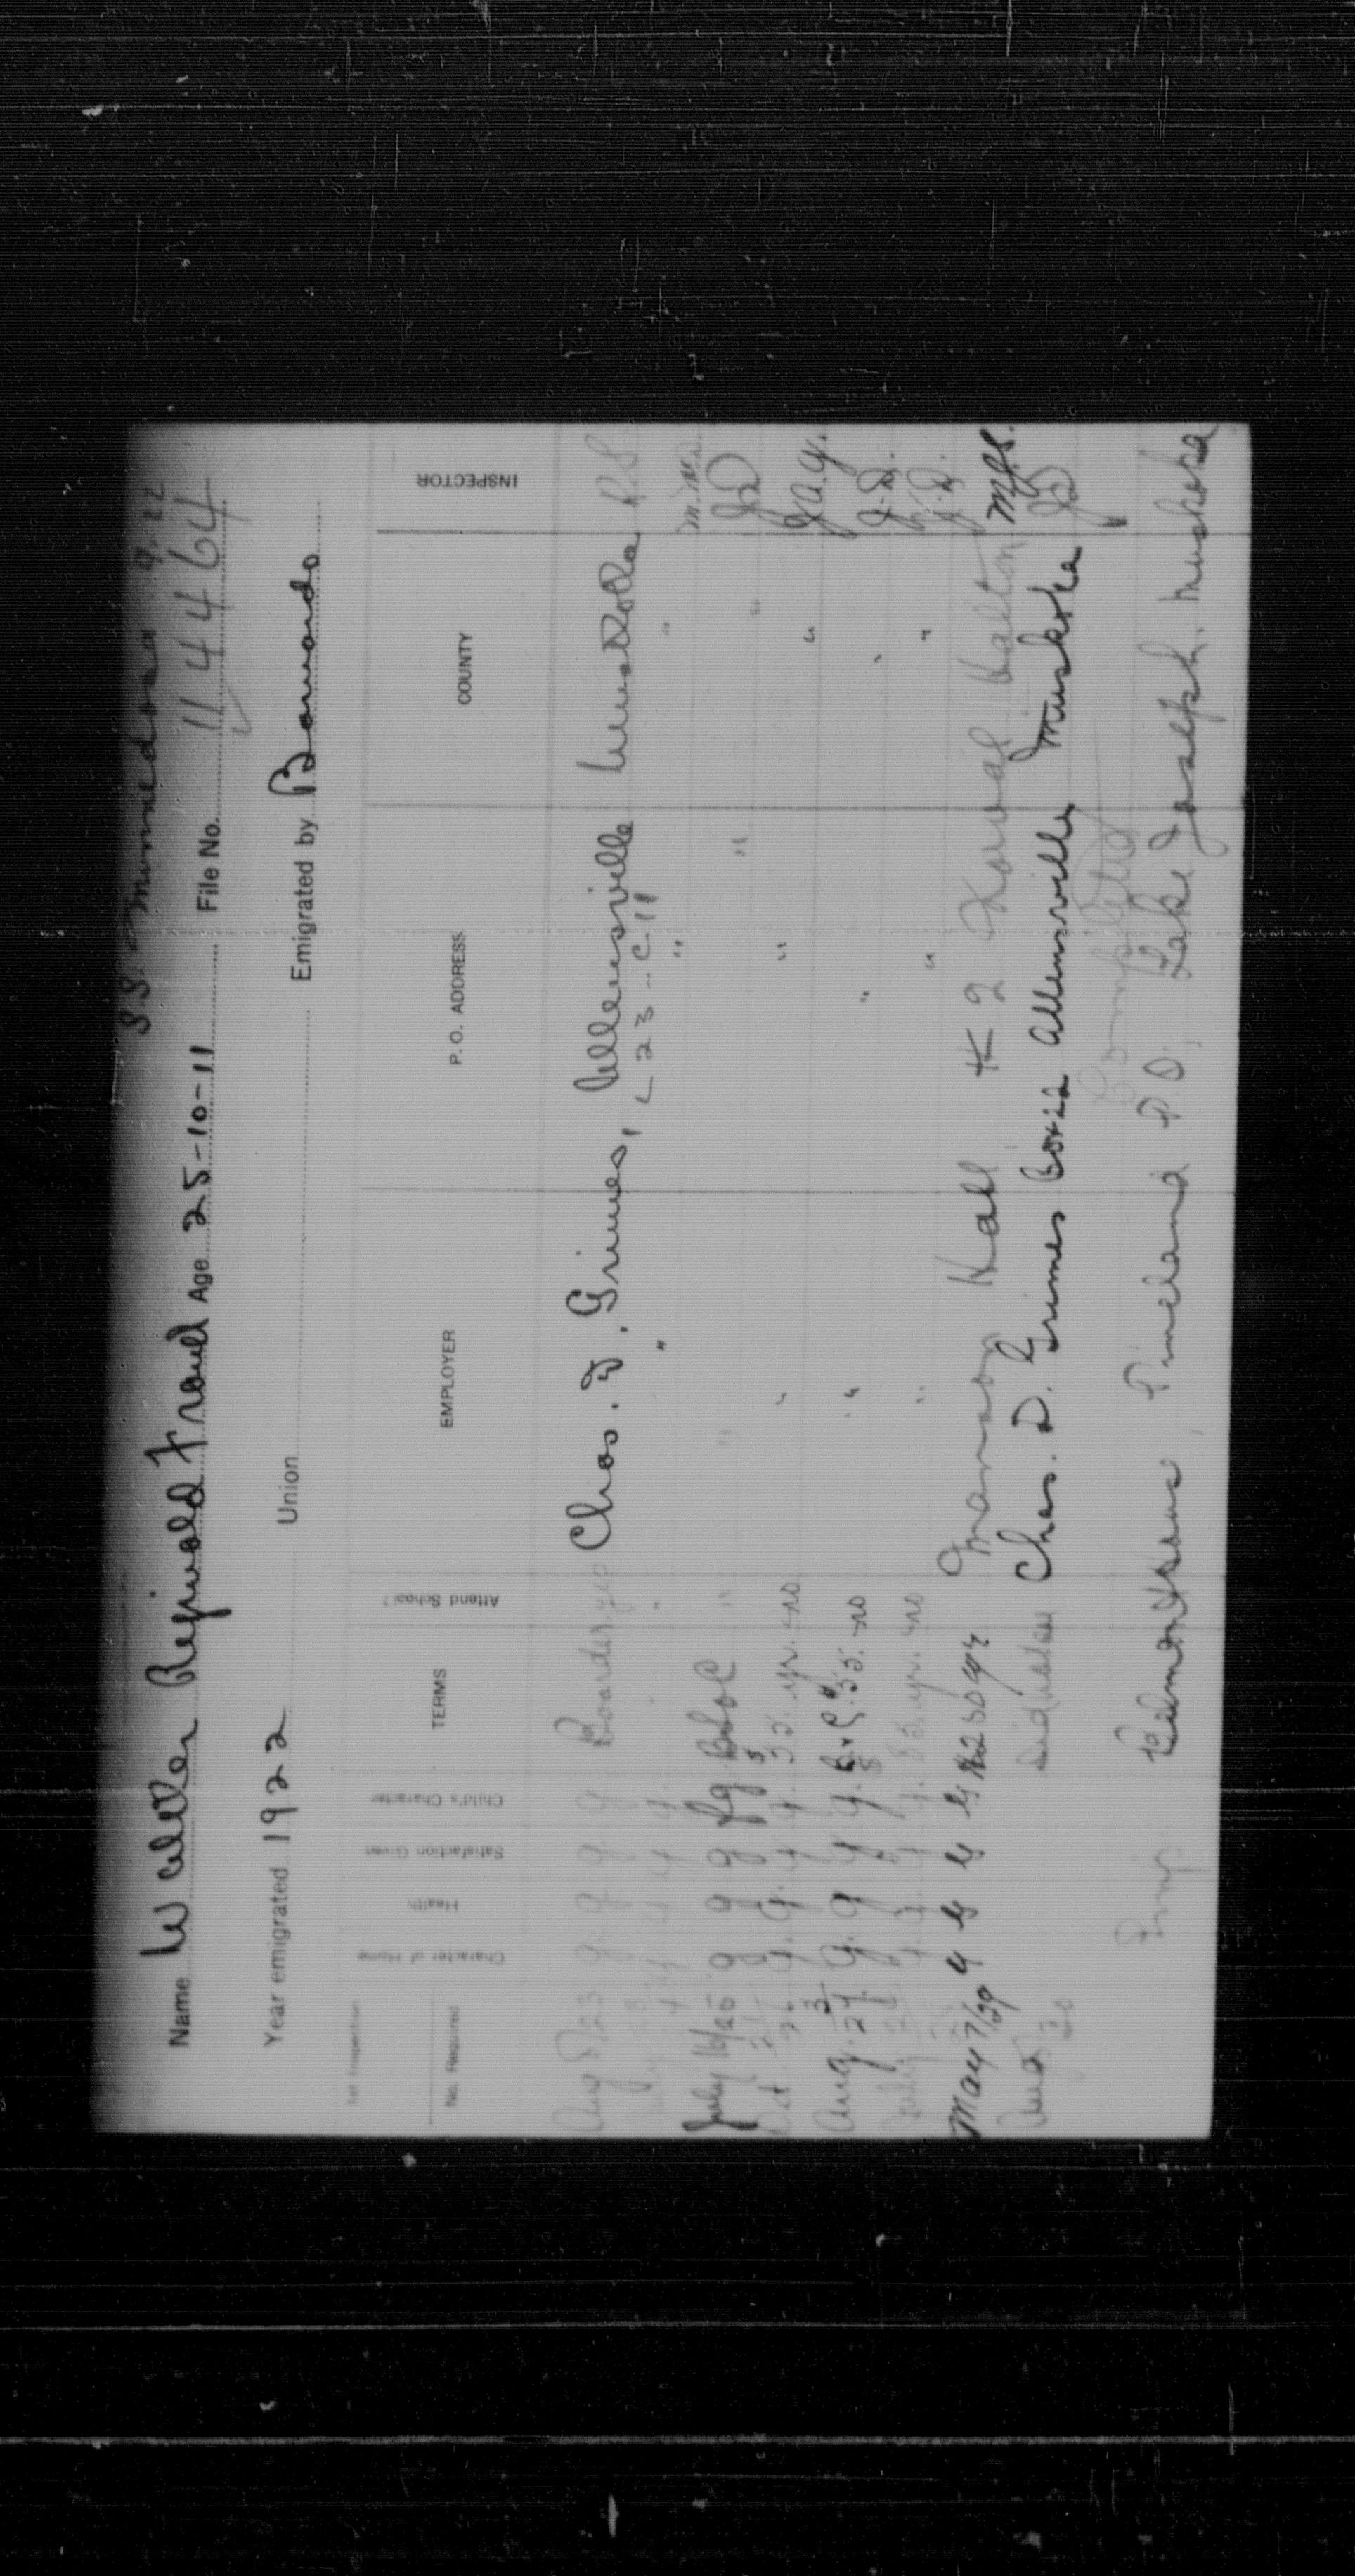 S.S. Minnedosa 9.22
Name Waller Reginald Frank Age 25-10-11 File No. 114464
Year emigrated 1922 Union Emigrated by Barnardo
1st Inspection
No. Required Character of Home Health Satisfaction Given Child's Character TERMS Attend School? EMPLOYER P. O. ADDRESS COUNTY INSPECTOR
Aug 8/23 g g g g Boarder yes Chas. D. Grimes, Allensville Muskoka R.S.
" L 23 - C 11 " M.M.D.
July 16/25 g g g fg B & C " " " " JD
Oct g. g. g g. 55. yr. no " " " J.A.G.
Aug. 3 27. g. g g g. B & C. 55. no " " " J.D.
July g. g. g. 85. yr. no " " " J.D.
May 7/29 G G G G Manson Hall R 2 Norval Halton M.J.S.
Aug 30 Chas. D. Grimes Box 22 Allensville Muskoka JD
Completed
Belmont House, Pineland P.O., Lake Joseph. Muskoka